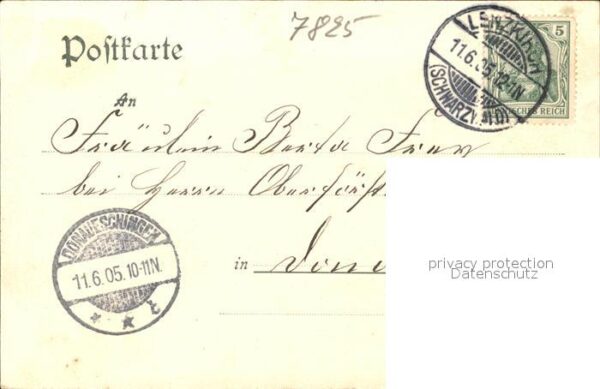 7825
Postkarte
LENZKIRCH
11.6.05.12-1N.
(SCHWARZWALD)
5
DEUTSCHES REICH
An
Fräulein Berta Frey
bei Herrn Oberförst
DONAUESCHINGEN
11.6.05.10-11N.
* * c
in Dona
privacy protection
Datenschutz